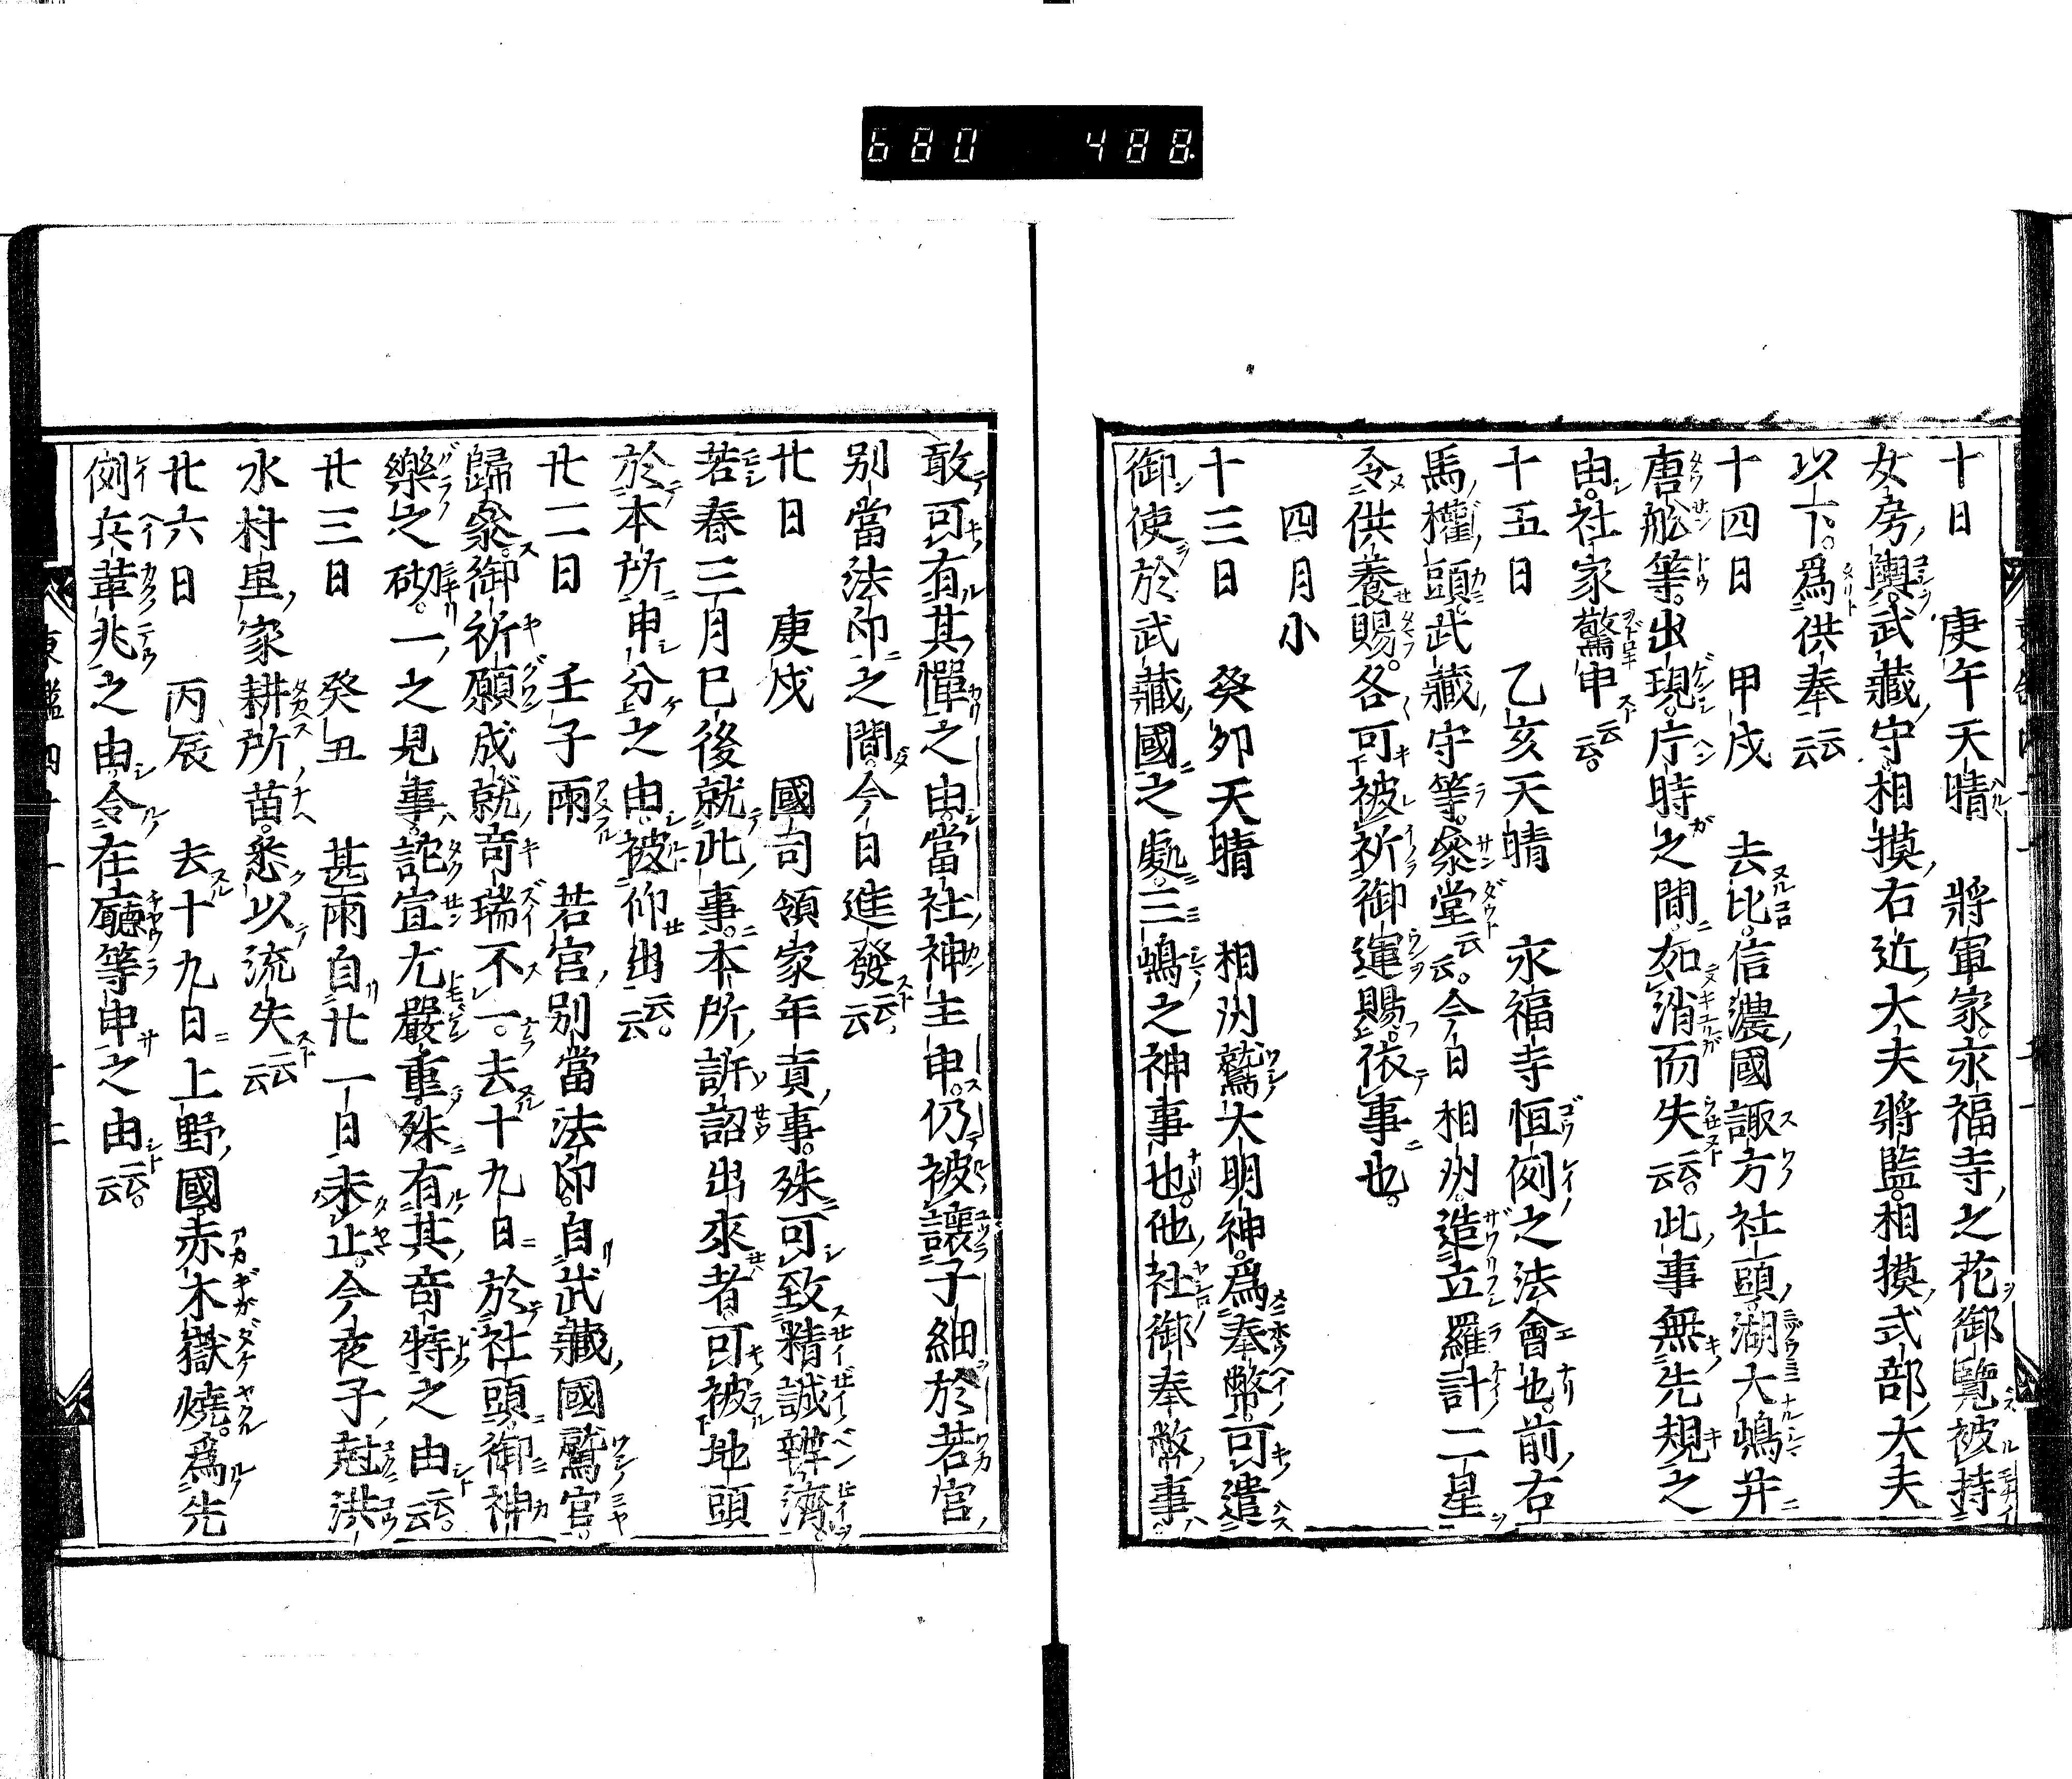 680 488.
十日 庚午天晴 將軍家。永福寺之花御覽被持
女房輿。武藏守。相摸右近大夫將監。相摸式部大夫
以下。爲供奉云云
十四日 甲戌 去比。信濃國諏方社頭。湖大嶋并
唐舩等。出現。片時之間。如消而失云云。此事無先規之
由。社家驚申云云。
十五日 乙亥天晴 永福寺恒例之法會也。前右
馬權頭。武藏守等。參堂云云。今日相州。造立羅計二星
令供養賜。各可被祈御運賜。依事也。
四月小
十三日 癸夘天晴 相州鷲大明神。爲奉幣。可遣
御使於武藏國之處。三嶋之神事也。他社御奉幣事。
敢可有其憚之由。當社神主申。仍被讓子細於若宮
別當法印之間。今日進發云云
廿日 庚戌 國司領家年貢事。殊可致精誠辨濟。
若春三月已後就此事。本所訴詔出來者。可被地頭
於本所申分之由。被仰出云云。
廿二日 壬子雨 若宮別當法印。自武藏國鷲宮。
歸參。御祈願成就奇瑞不一。去十九日於社頭。御神
樂之砌。一之見事。詫宣尤嚴重。殊有其奇特之由云云。
廿三日 癸丑 甚雨自廿一日未止。今夜子尅洪
水村里。家耕所苗。悉以流失云云
廿六日 丙辰 去十九日上野國。赤木嶽燒。爲先
例兵革兆之由。令在廳等申之由云云。